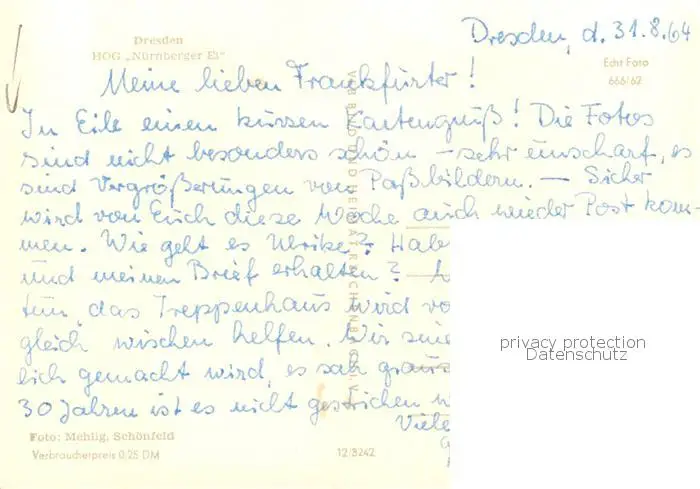 Dresden, d. 31.8.64
Dresden
HOG „Nürnberger Ei"
Echt Foto
666/62
Meine lieben Frankfurter!
In Eile einen kurzen Kartengruß! Die Fotos
sind nicht besonders schön – sehr unscharf, es
sind Vergrößerungen von Paßbildern. – Sicher
wird von Euch diese Woche auch wieder Post kom-
men. Wie geht es Ulrike? Hab
und meinen Brief erhalten? –
tun, das Treppenhaus wird vo
gleich wischen helfen. Wir sind
lich gemacht wird, es sah graus
30 Jahren ist es nicht gestrichen w
Viele
Foto: Mehlig, Schönfeld
Verbraucherpreis 0,25 DM
12/3242
VEB BILD UND HEIMAT REICHENBACH I. V.
privacy protection
Datenschutz